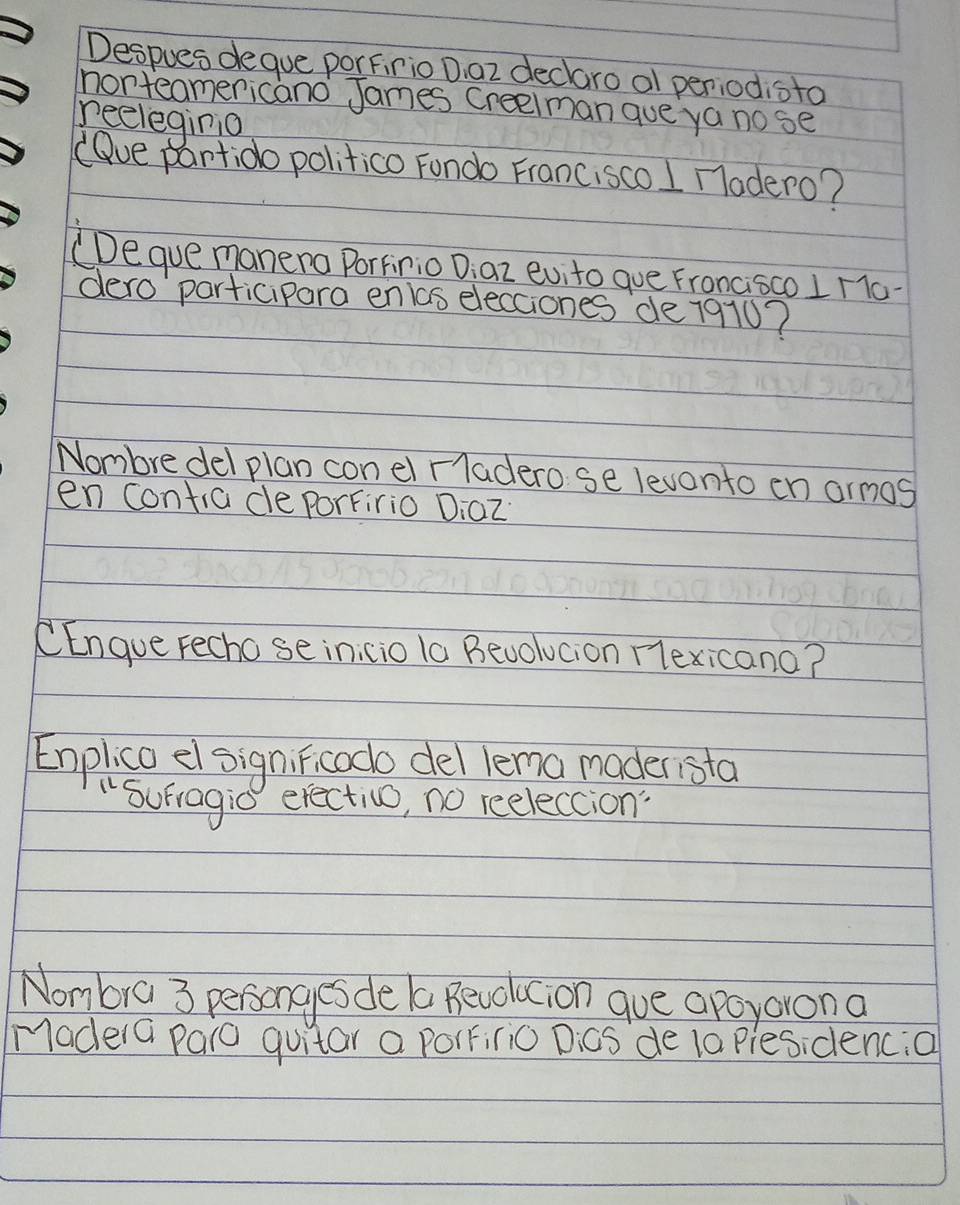 Despues de que porfirio Diaz declaro al periodista
norteamericano James Creelman que ya no se
reelegirio
¿Que partido politico Fundo Francisco I Madero?
¿De que manera Porfirio Diaz evito que Francisco I Ma-
dero participara en las elecciones de 1910?
Nombre del plan con el Madero se levanto en armas
en contra de Porfirio Diaz
¿En que fecha se inicio la Revolucion Mexicana?
Enplica el significado del lema maderista
"Sufragio efectivo, no reeleccion"
Nombra 3 personajes de la Revolucion que apoyaron a
Madera para quitar a Porfirio Dias de la Presidencia